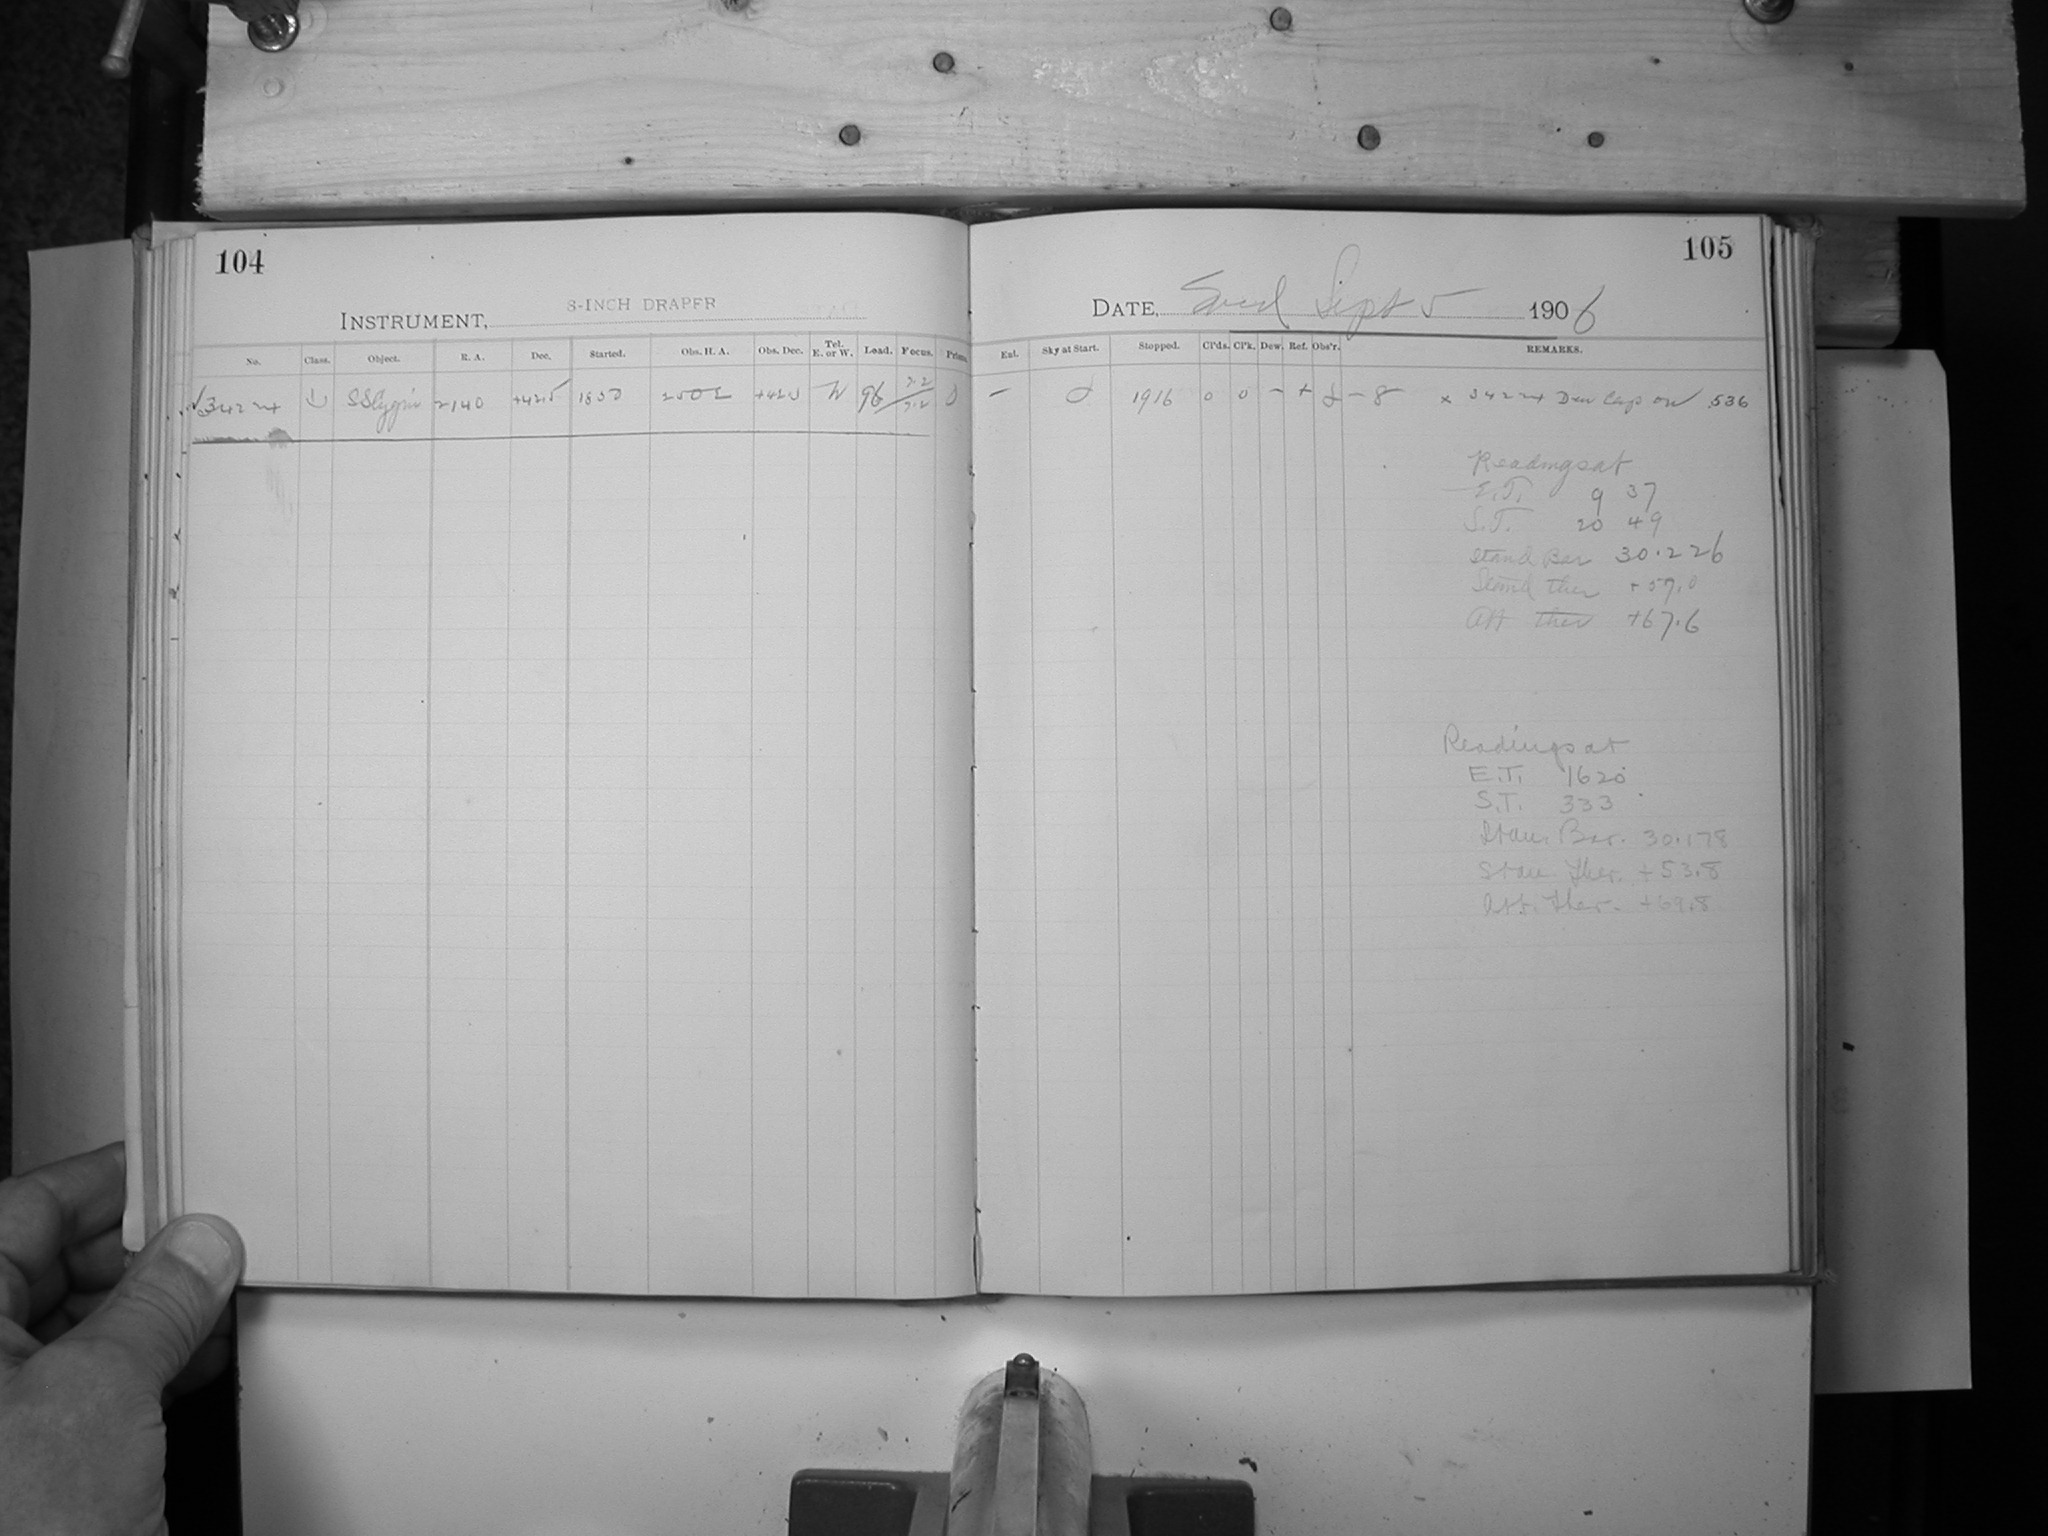 104
INSTRUMENT, 8-INCH DRAPER
No. Class. Object. R. A. Dec. Started. Obs. H. A. Obs. Dec. Tel. E. or W. Load. Focus. Prism.
34224 SS Cygni 2140 +42.5 W 96
105
DATE, Wed Sept 5 1906
Ent. Sky at Start. Stopped. Cl'ds. Cl'k. Dew. Ref. Obs'r. REMARKS.
– 1916 0 0 – + – 8 x 34224 Dew Cap on 536
Readings at
E.T. 9 37
S.T. 20 49
Stand Bar 30.226
Stand ther +57.0
Att ther +67.6
Readings at
E.T. 1620
S.T. 333
Stan. Bar. 30.178
Stan Ther. +53.8
Att. Ther. +69.8